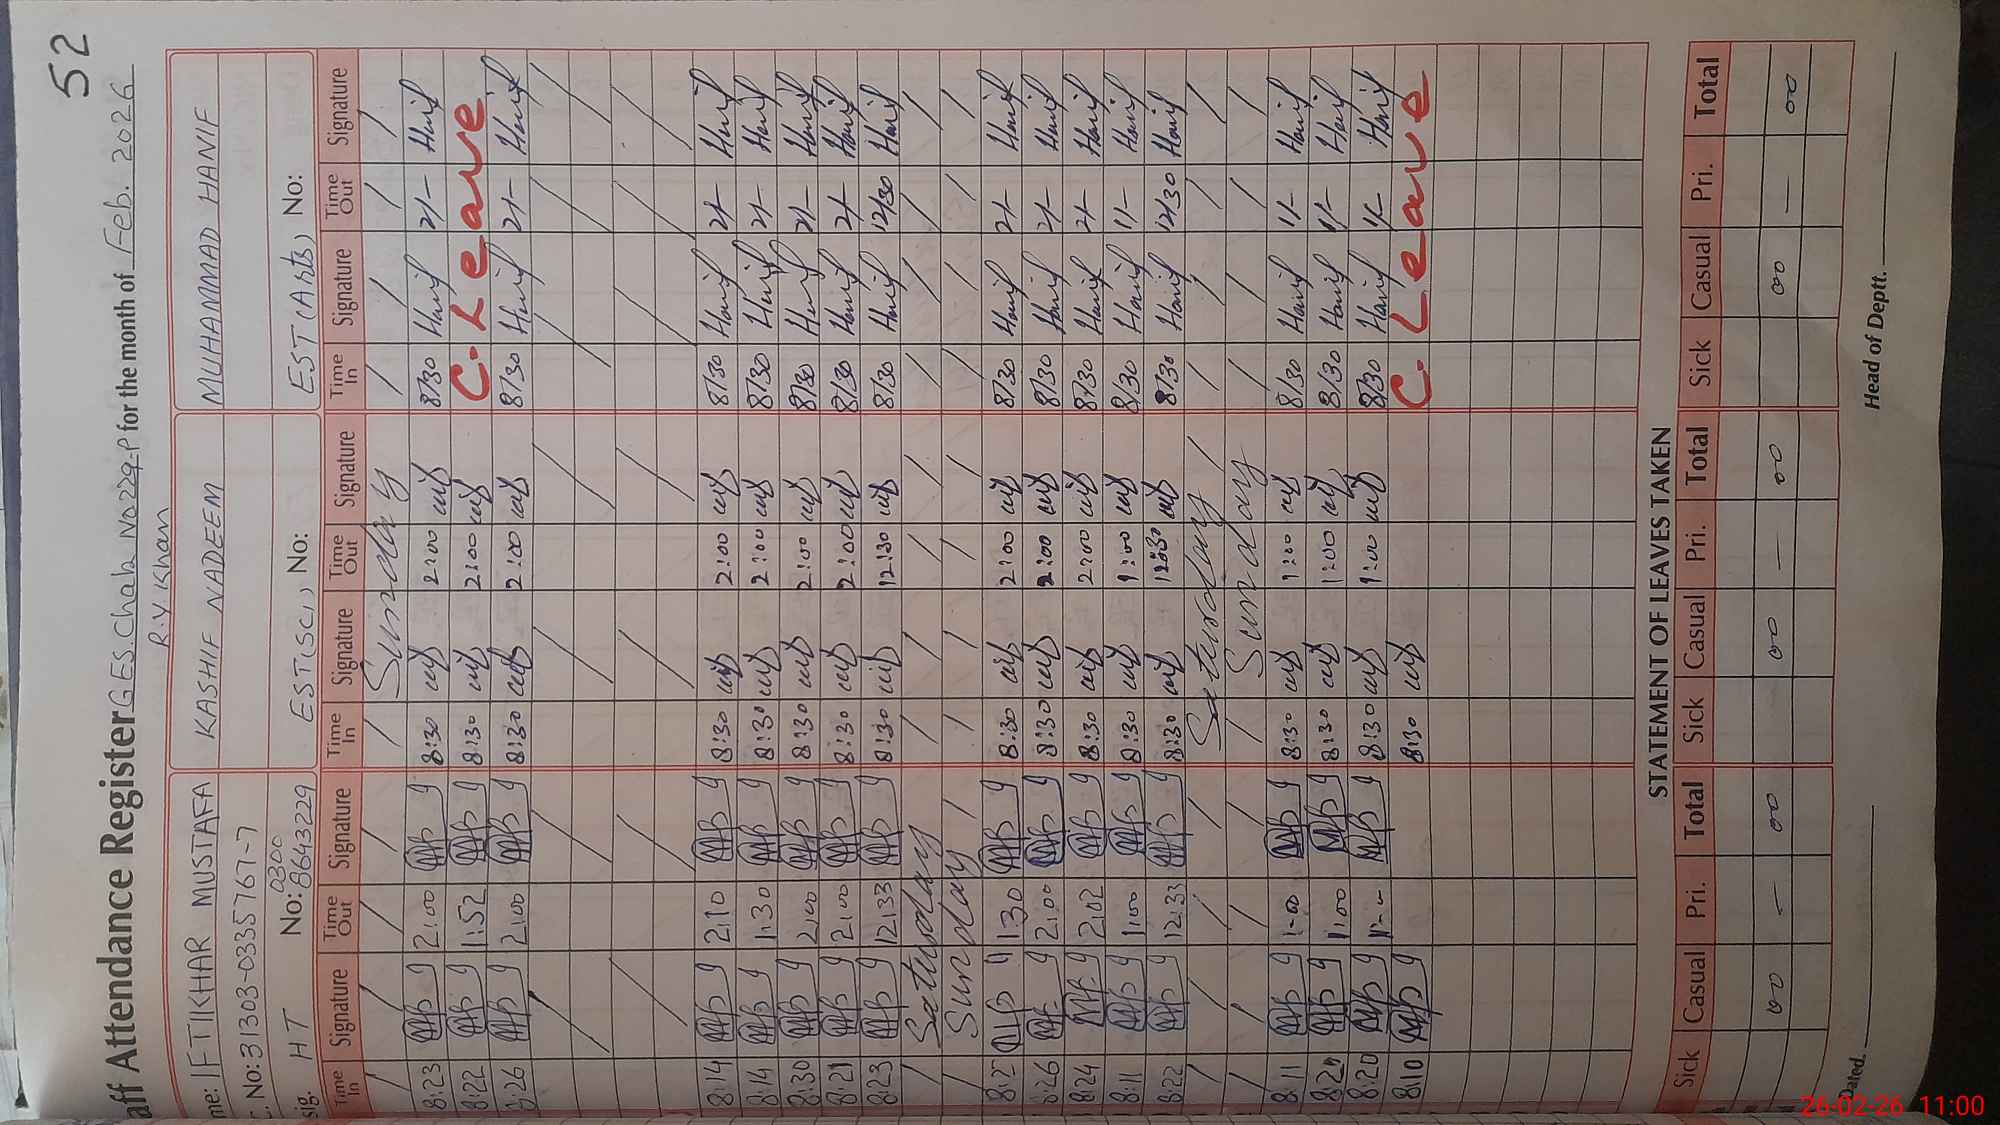 52
aff Attendance Register GES. Chak No 229-P for the month of Feb. 2026
R.Y. Khan
me: IFTIKHAR MUSTAFA KASHIF NADEEM MUHAMMAD HANIF
C. No: 31303-0335767-7
0300
sig. HT No: 8643229 EST(SCI) No: EST(Arts) No:
Time In Signature Time Out Signature Time In Signature Time Out Signature Time In Signature Time Out Signature
Sunday
8:23 2:00 8:30 2:00 8/30 Hanif 2/- Hanif
8:22 1:52 8:30 2:00 C. Leave
8:26 2:00 8:30 2:00 8/30 Hanif 2/- Hanif
8:14 2:10 8:30 2:00 8/30 Hanif 2/- Hanif
8:14 1:30 8:30 2:00 8/30 Hanif 2/- Hanif
8:30 2:00 8:30 2:00 8/30 Hanif 2/- Hanif
8:21 2:00 8:30 2:00 8/30 Hanif 2/- Hanif
8:23 12:33 8:30 12:30 8/30 Hanif 12/30 Hanif
Saturday
Sunday
1:30 8:30 2:00 8/30 Hanif 2/- Hanif
8:26 2:00 8:30 2:00 8/30 Hanif 2/- Hanif
8:24 2:02 8:30 2:00 8/30 Hanif 2/- Hanif
8:11 1:00 8:30 1:00 8/30 Hanif 1/- Hanif
8:22 12:33 8:30 12:30 8/30 Hanif 12/30 Hanif
Saturday
Sunday
8:11 1:00 8:30 1:00 8/30 Hanif 1/- Hanif
1:00 8:30 1:00 8/30 Hanif 1/- Hanif
8:20 8:30 1:00 8/30 Hanif 1/- Hanif
8:10 8:30 C. Leave
STATEMENT OF LEAVES TAKEN
Sick Casual Pri. Total Sick Casual Pri. Total Sick Casual Pri. Total
00 — 00 00 — 00 00 — 00
Dated. Head of Deptt.
26-02-26 11:00